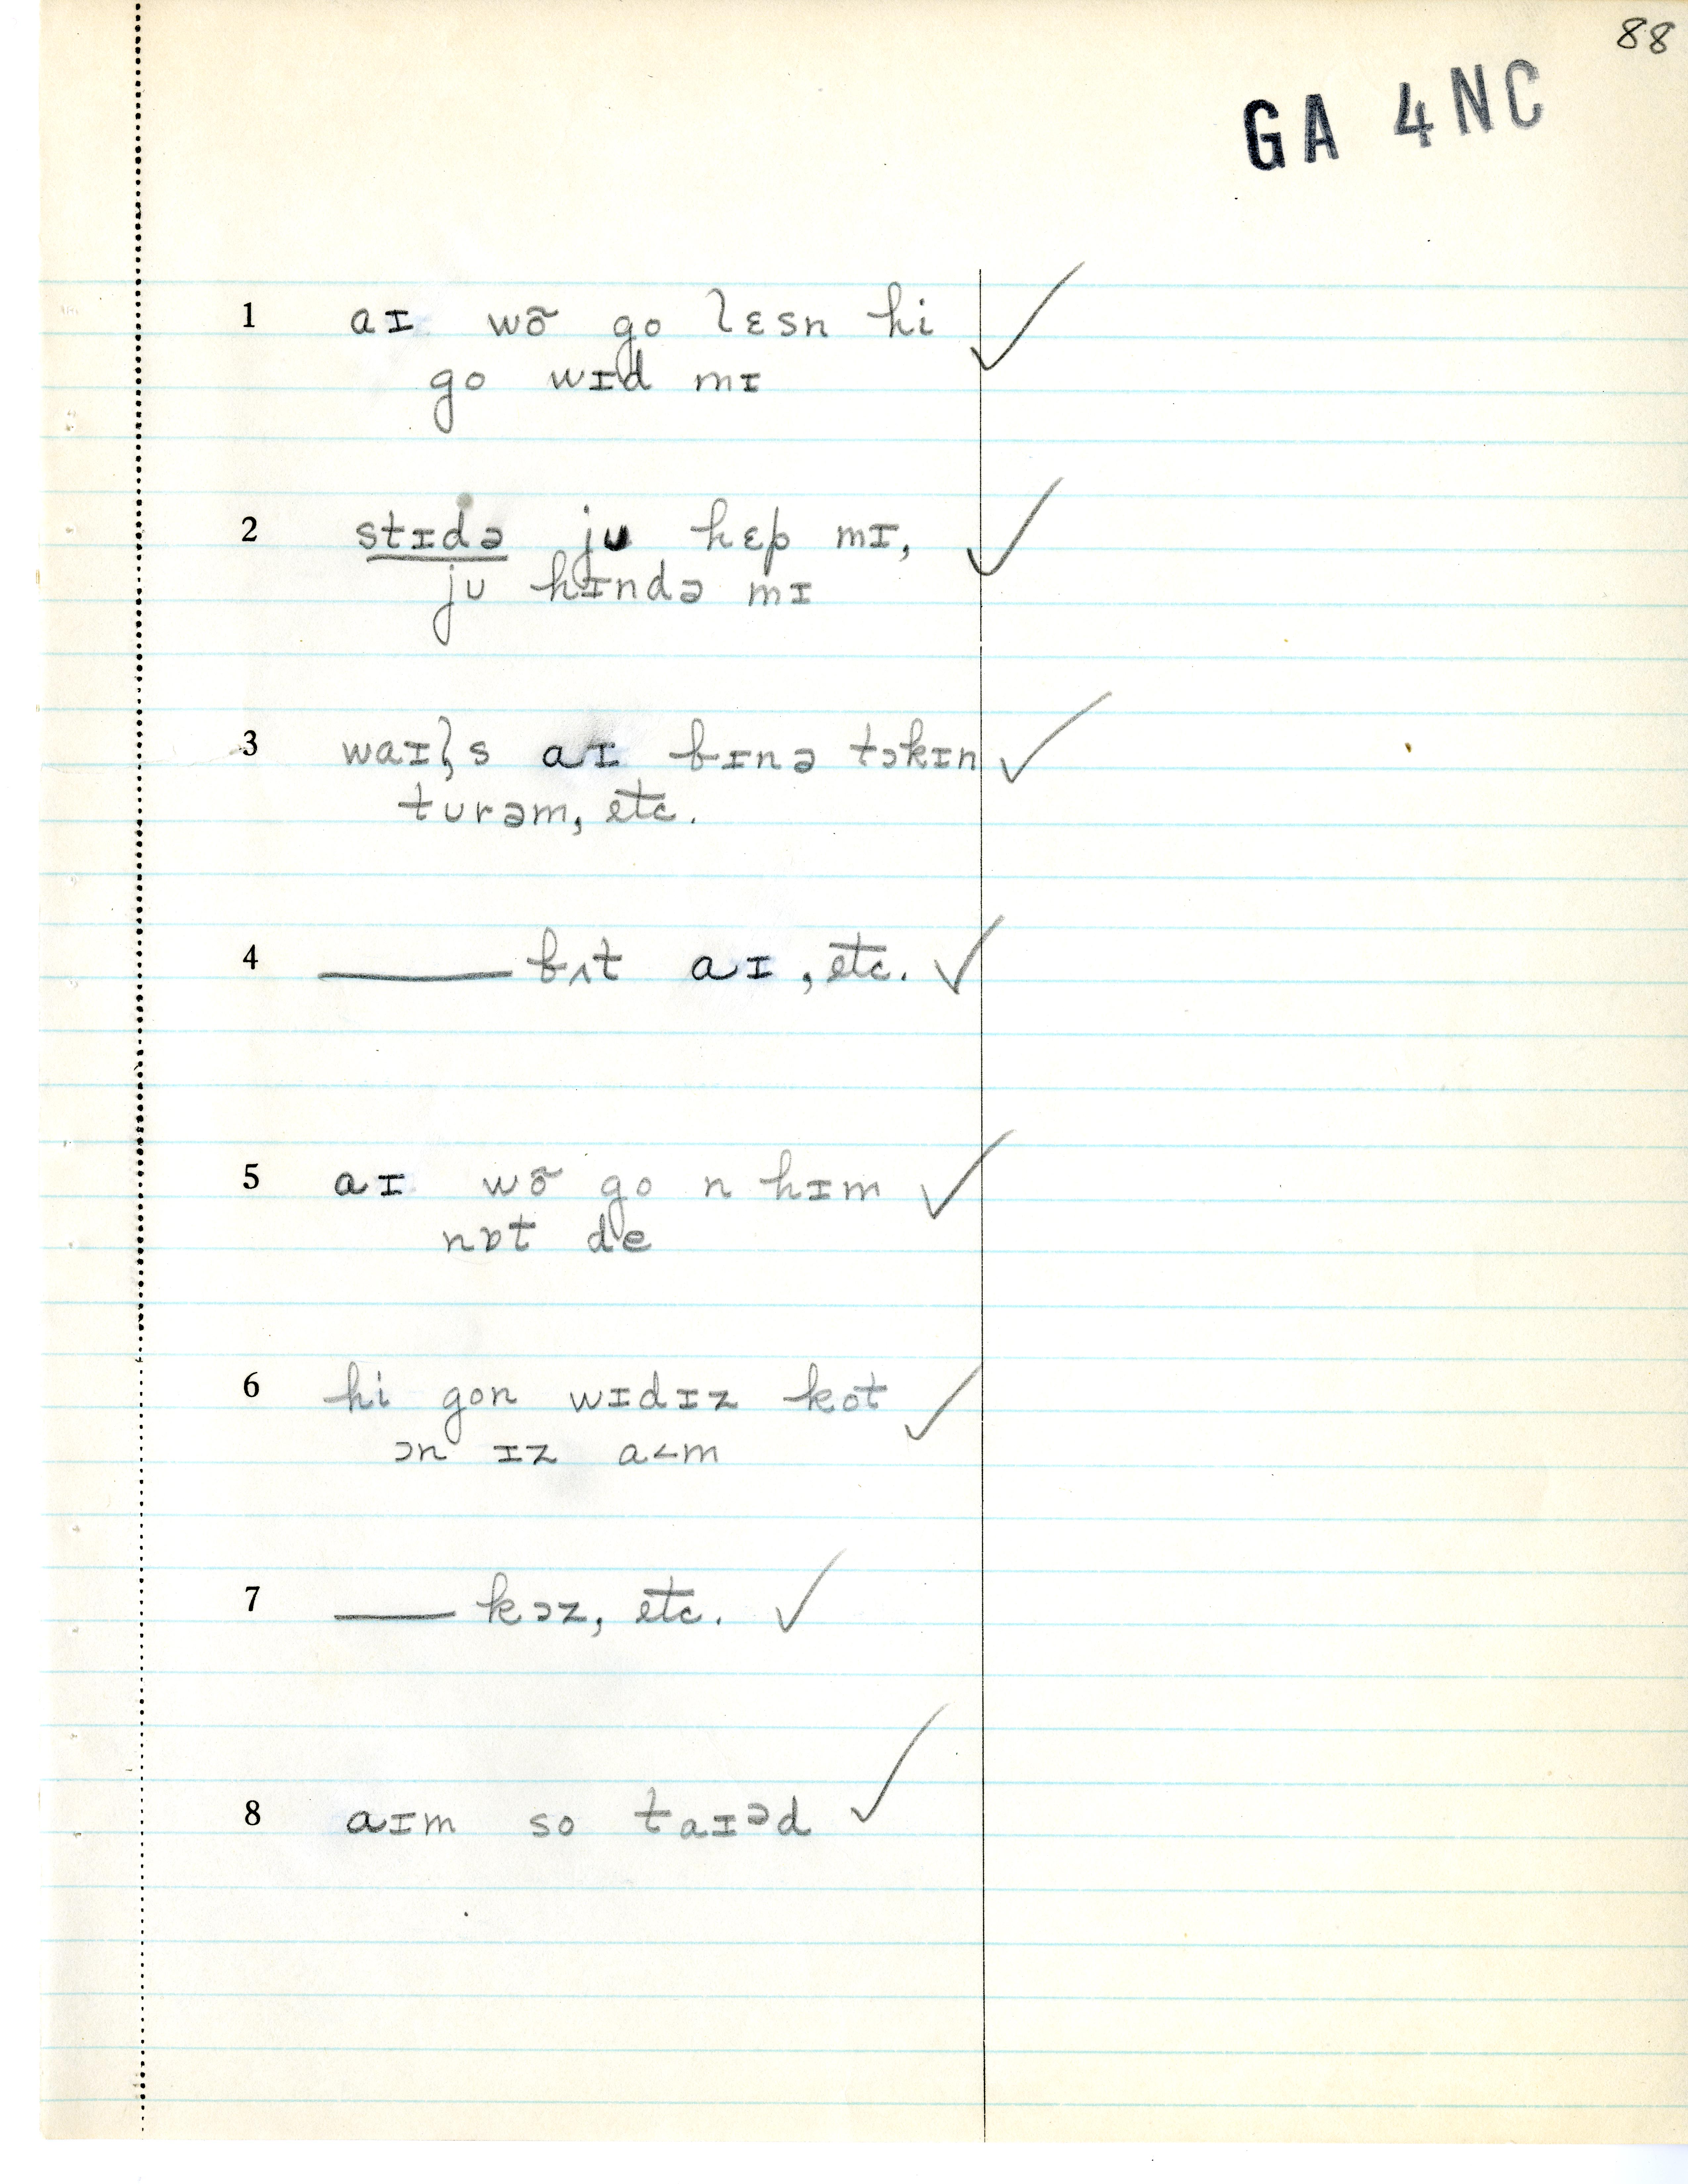 88
GA 4NC
1 aɪ wõ go lɛsn hi ✓
go wɪd mɪ
2 stɪdə ju hɛp mɪ, ✓
ju hɪndə mɪ
3 waɪls aɪ bɪnə tɔkɪn ✓
turəm, etc.
4 ——— bʌt aɪ, etc. ✓
5 aɪ wõ go n hɪm ✓
nɒt de
6 hi gon wɪdɪz kot ✓
ɔn ɪz a<m
7 ——— kɔz, etc. ✓
8 aɪm so taɪəd ✓